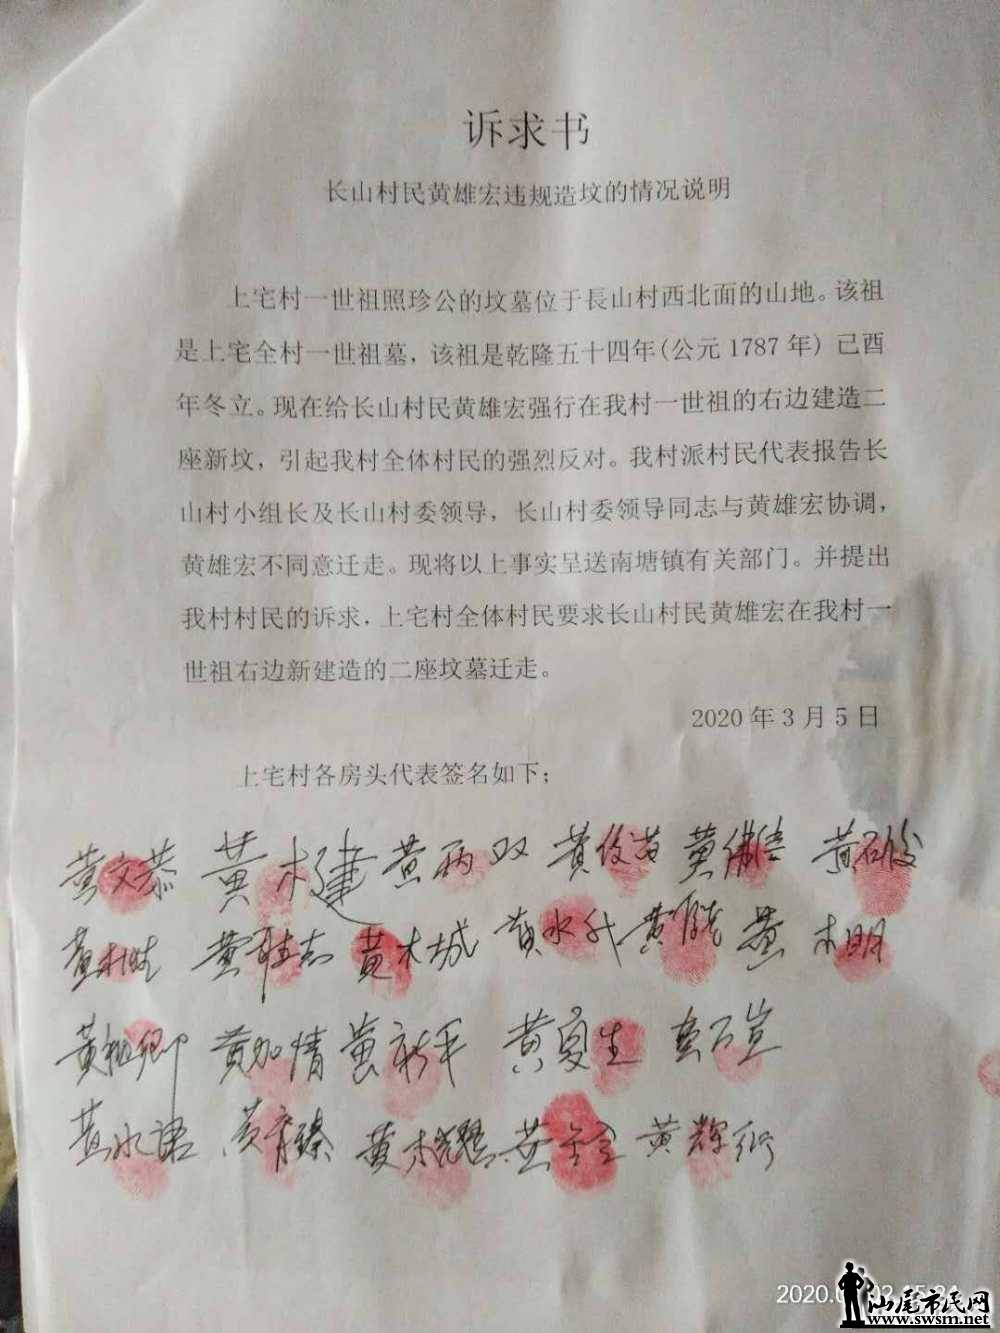 诉求书
长山村民黄雄宏违规造坟的情况说明
上宅村一世祖照珍公的坟墓位于長山村西北面的山地。该祖
是上宅全村一世祖墓，该祖是乾隆五十四年(公元1787年)己酉
年冬立。现在给长山村民黄雄宏强行在我村一世祖的右边建造二
座新坟，引起我村全体村民的强烈反对。我村派村民代表报告长
山村小组长及长山村委领导，长山村委领导同志与黄雄宏协调，
黄雄宏不同意迁走。现将以上事实呈送南塘镇有关部门。并提出
我村村民的诉求，上宅村全体村民要求长山村民黄雄宏在我村一
世祖右边新建造的二座坟墓迁走。
2020年3月5日
上宅村各房头代表签名如下；
黄文恭 黄木建 黄两双 黄 黄 黄石
黄 黄 黄木城 黄水 黄 黄木明
黄 黄加情 黄新平 黄 生 黄万
黄水 黄育臻 黄木 黄 黄辉
2020.
汕尾市民网
www.swsm.net